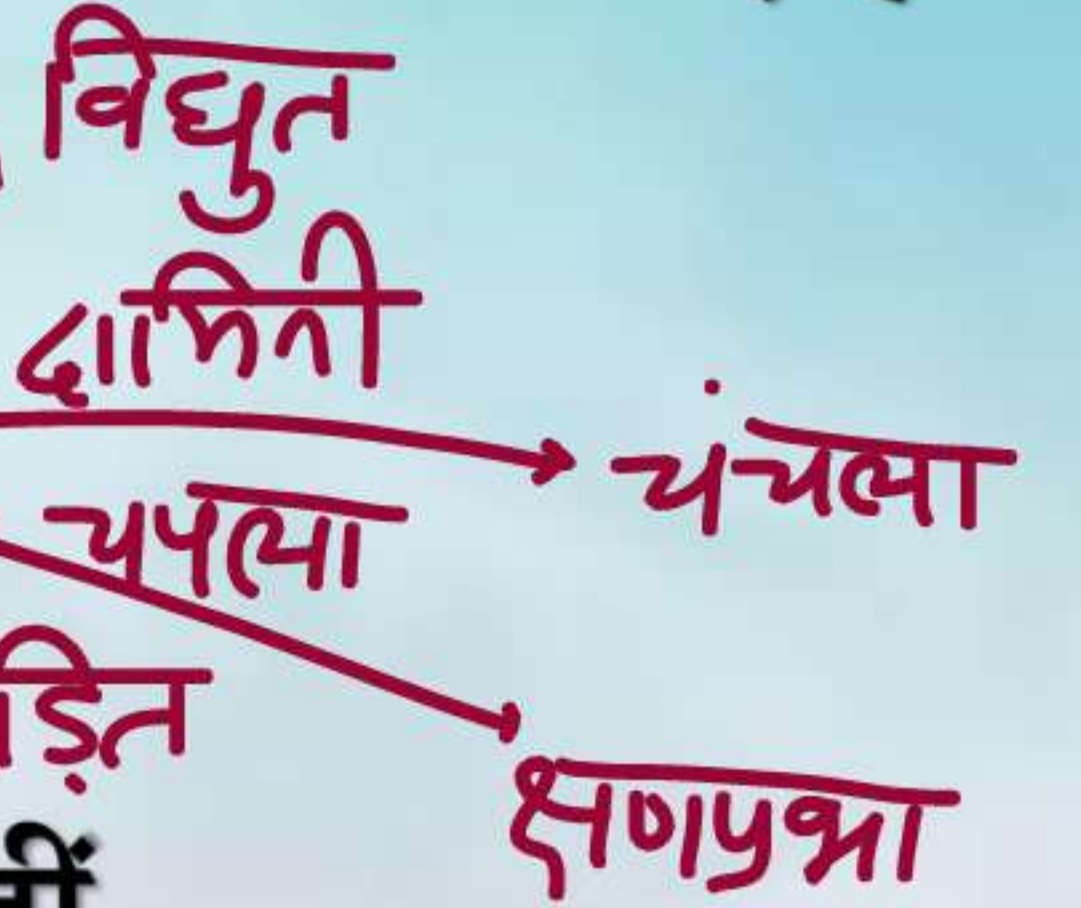 विद्युत
दामिनी
चंचला
चपला
ड़ित
क्षणप्रभा